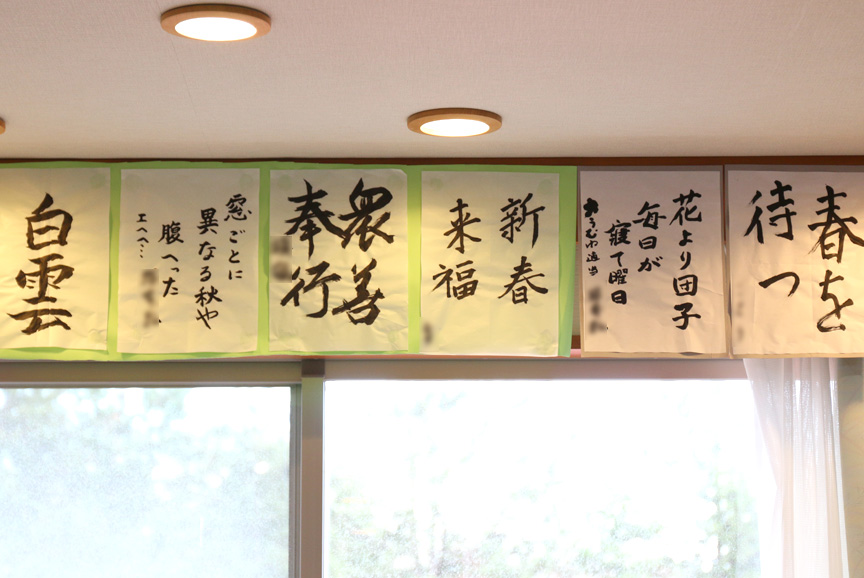 春を
待つ
花より団子
毎日が
寝て曜日
新春
来福
衆善
奉行
窓ごとに
異なる秋や
腹へった
エヘヘ…
白雲